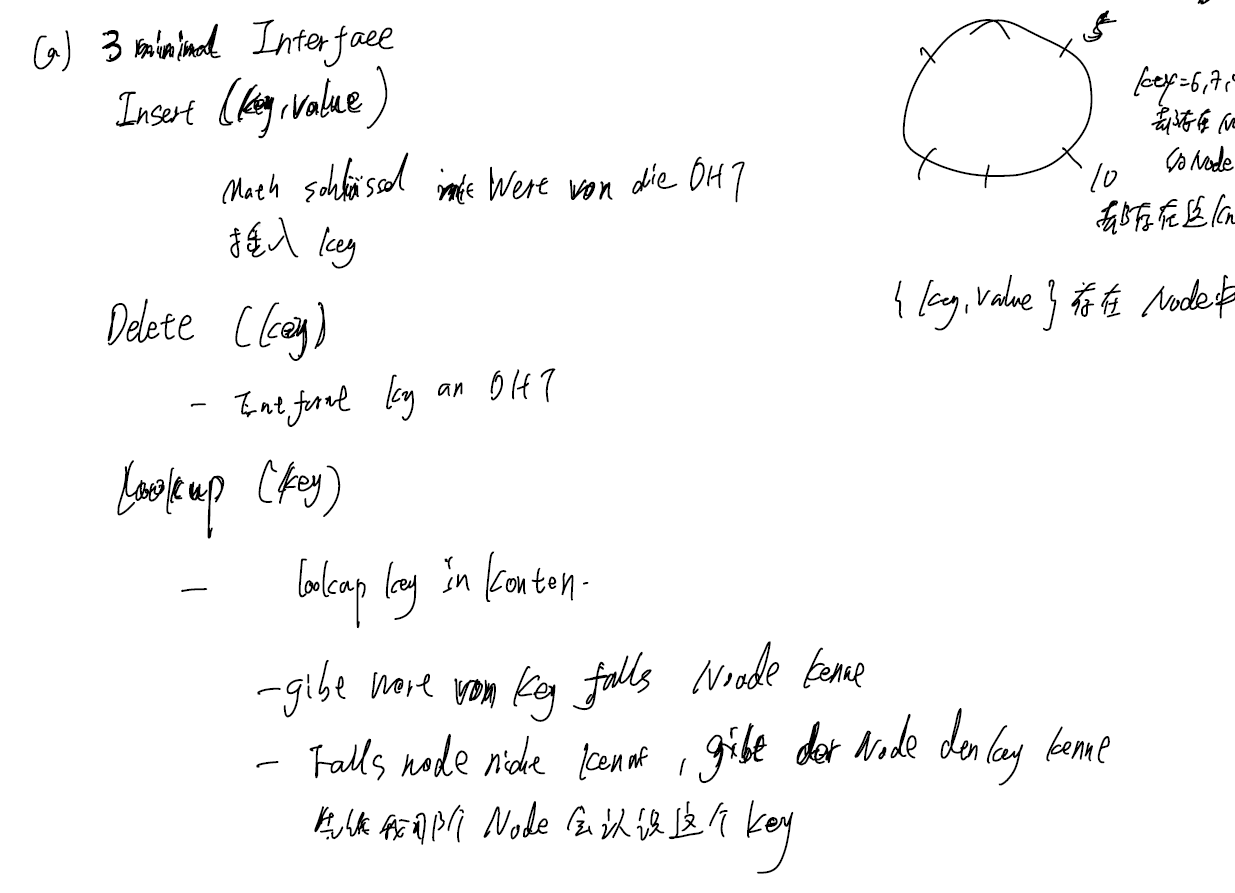 (a) 3 minimal Interface
Insert (key, value)
Math schlüssel mit Wert von die DHT
插入 key
Delete (key)
- Entfernt key an DHT
Lookup (key)
- lookup key in Knoten.
- gibt wert von key falls Node kenne
- Falls node nicht kennt, gibt der Node den key kenne
告诉我哪个 Node 会认识这个 key
5
key=6,7,
都存在
Node
10
都存在这
{key, value} 存在 Node中